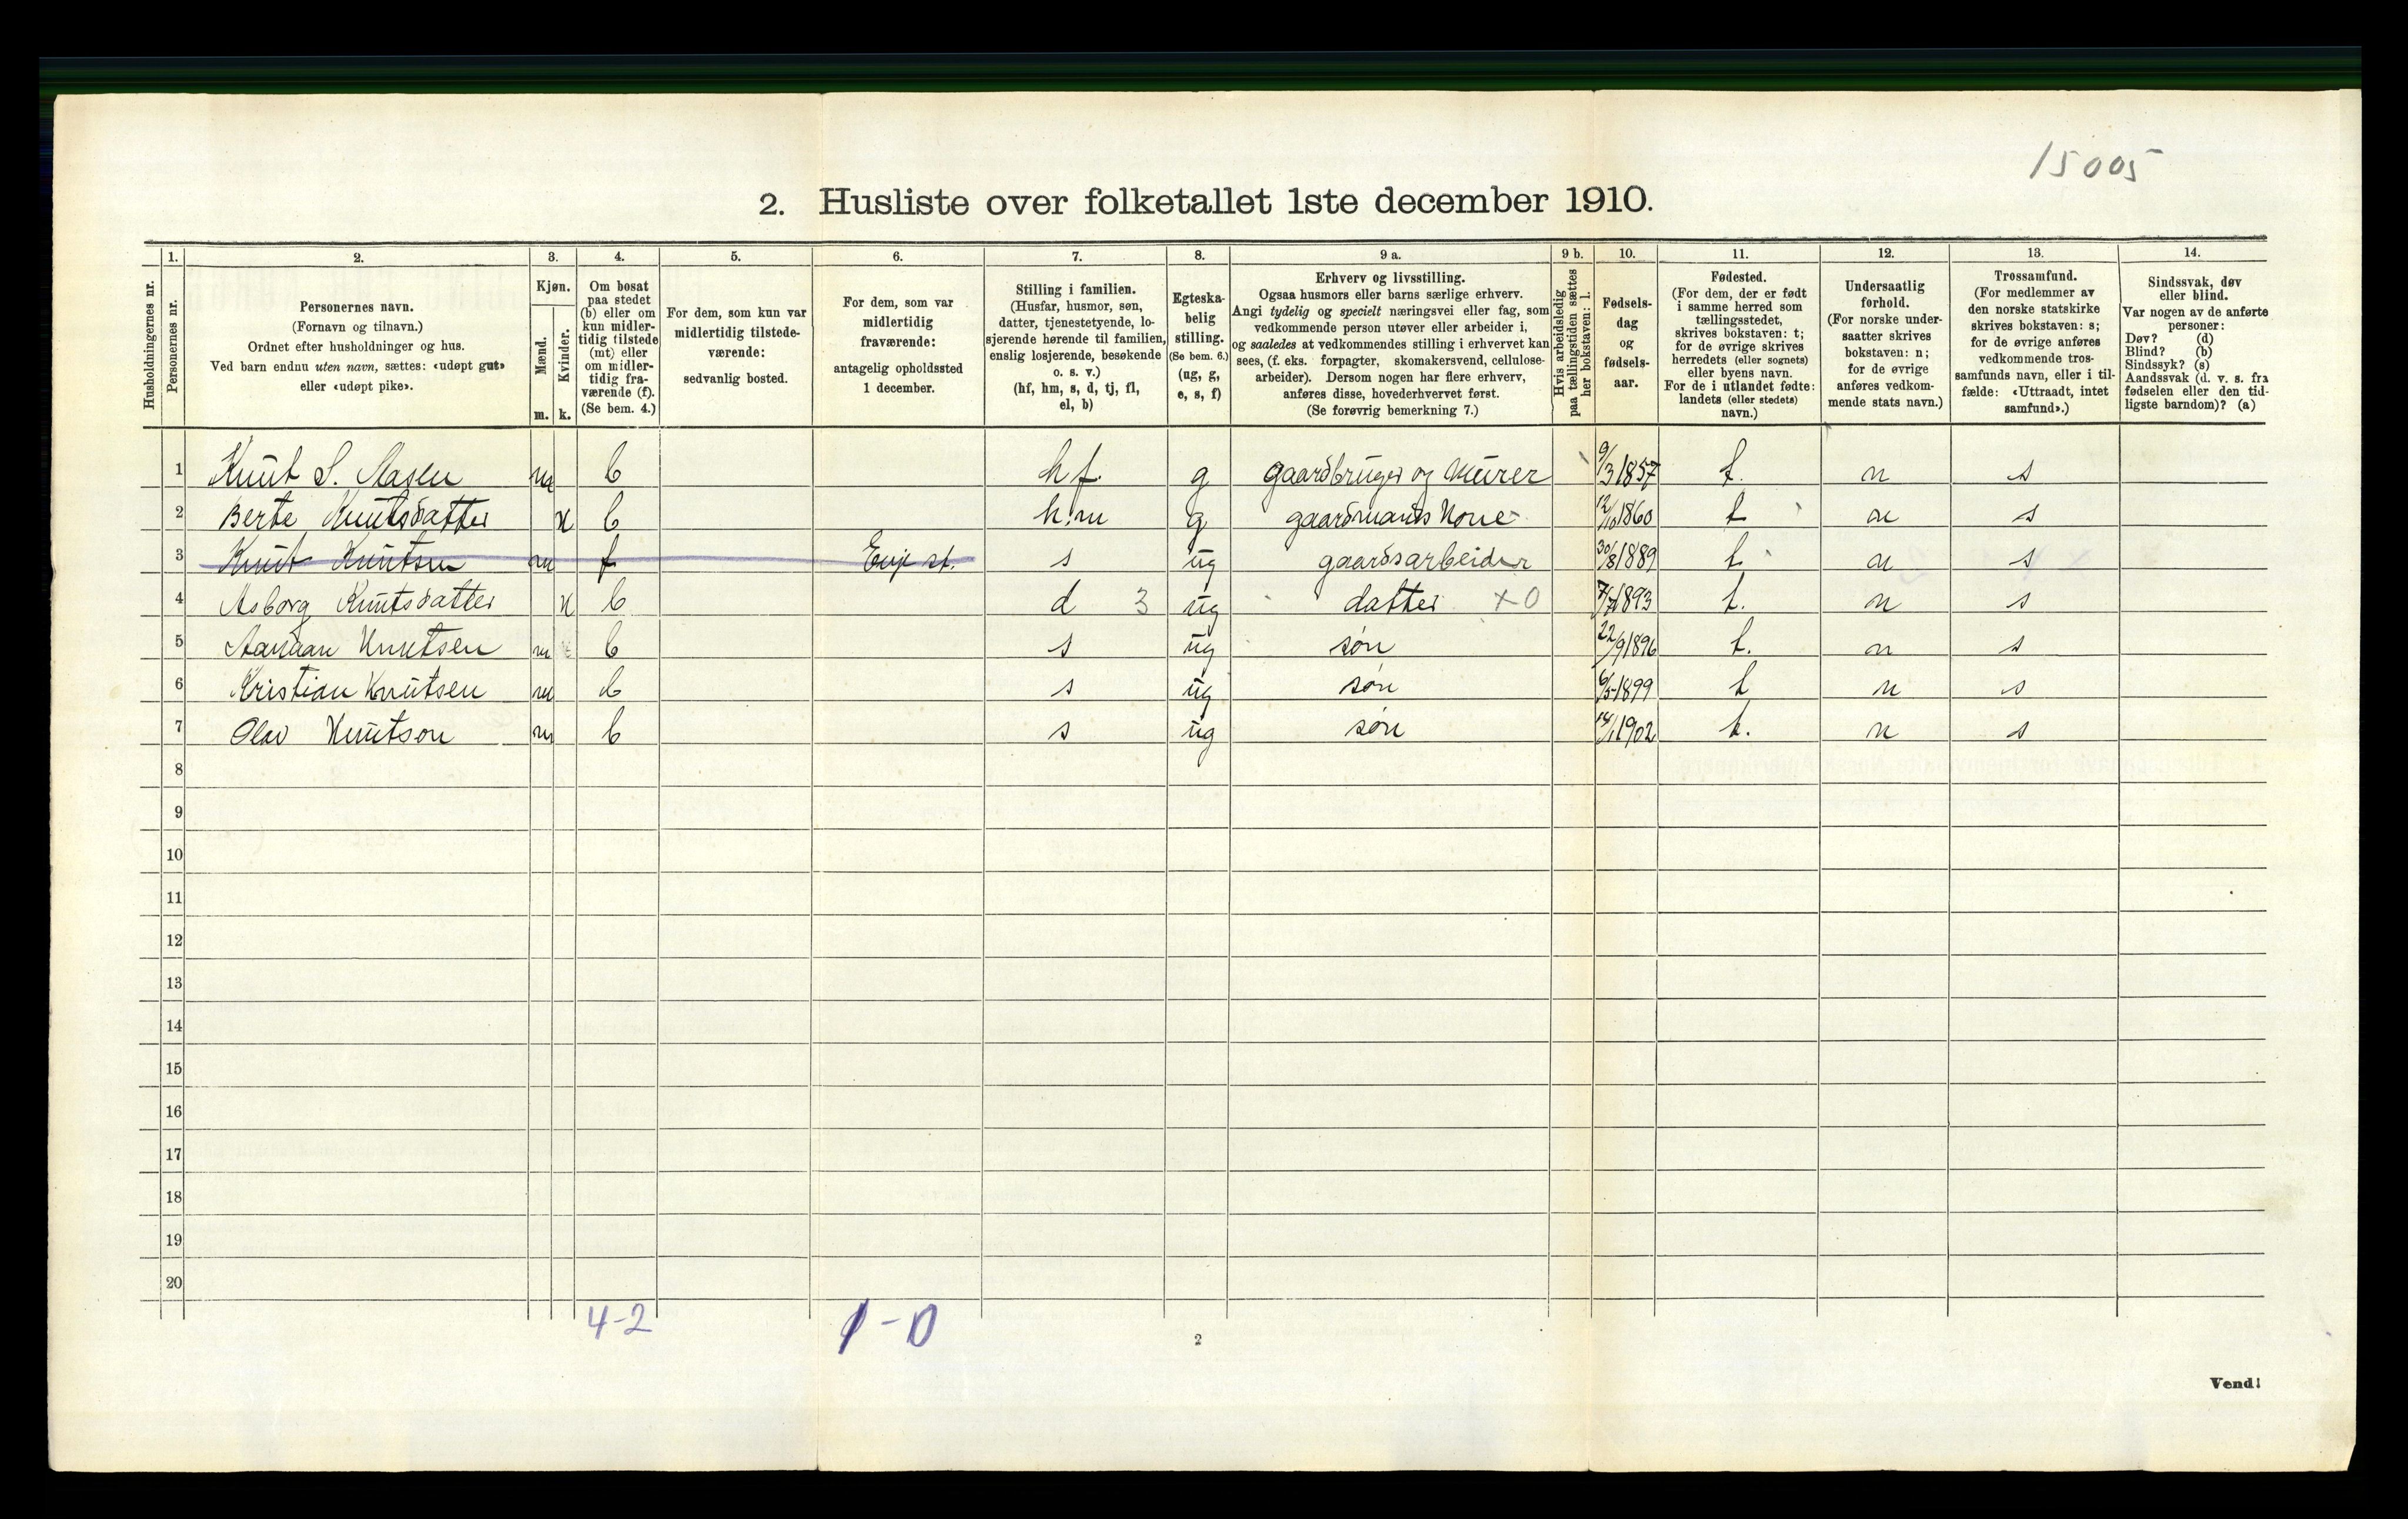 15005
2. Husliste over folketallet 1ste december 1910.
Husholdningernes nr.
1.
Personernes nr.
2.
Personernes navn.
(Fornavn og tilnavn.)
Ordnet efter husholdninger og hus.
Ved barn endnu uten navn, sættes: «udøpt gut»
eller «udøpt pike».
3.
Kjøn.
Mænd.
m.
Kvinder.
k.
4.
Om bosat
paa stedet
(b) eller om
kun midler-
tidig tilstede
(mt) eller
om midler-
tidig fra-
værende (f).
(Se bem. 4.)
5.
For dem, som kun var
midlertidig tilstede-
værende:
sedvanlig bosted.
6.
For dem, som var
midlertidig
fraværende:
antagelig opholdssted
1 december.
7.
Stilling i familien.
(Husfar, husmor, søn,
datter, tjenestetyende, lo-
sjerende hørende til familien,
enslig losjerende, besøkende
o. s. v.)
(hf, hm, s, d, tj, fl,
el, b)
8.
Egteska-
belig
stilling.
(Se bem. 6.)
(ug, g,
e, s, f)
9 a.
Erhverv og livsstilling.
Ogsaa husmors eller barns særlige erhverv.
Angi tydelig og specielt næringsvei eller fag, som
vedkommende person utøver eller arbeider i,
og saaledes at vedkommendes stilling i erhvervet kan
sees, (f. eks. forpagter, skomakersvend, cellulose-
arbeider). Dersom nogen har flere erhverv,
anføres disse, hovederhvervet først.
(Se forøvrig bemerkning 7.)
9 b.
Hvis arbeidsledig
paa tællingstiden sættes
her bokstaven: l.
10.
Fødsels-
dag
og
fødsels-
aar.
11.
Fødested.
(For dem, der er født
i samme herred som
tællingsstedet,
skrives bokstaven: t;
for de øvrige skrives
herredets (eller sognets)
eller byens navn.
For de i utlandet fødte:
landets (eller stedets)
navn.)
12.
Undersaatlig
forhold.
(For norske under-
saatter skrives
bokstaven: n;
for de øvrige
anføres vedkom-
mende stats navn.)
13.
Trossamfund.
(For medlemmer av
den norske statskirke
skrives bokstaven: s;
for de øvrige anføres
vedkommende tros-
samfunds navn, eller i til-
fælde: «Uttraadt, intet
samfund».)
14.
Sindssvak, døv
eller blind.
Var nogen av de anførte
personer:
Døv? (d)
Blind? (b)
Sindssyk? (s)
Aandssvak (d. v. s. fra
fødselen eller den tid-
ligste barndom)? (a)
1 Knut S. Aasen m b hf. g gaardbruger og murer 9/3 1857 t. n s
2 Berte Knutsdatter k b h.m g gaardmands kone 12/10 1860 t n s
3 Knut Knutsen m f st. s ug gaardsarbeider 30/8 1889 t n s
4 Asborg Knutsdatter k b d 3 ug datter x0 7/7 1893 t. n s
5 Knutsen m b s ug søn 22/9 1896 t. n s
6 Kristian Knutsen m b s ug søn 6/5 1899 t n s
7 Olav Knutson m b s ug søn 14/1 1902 t. n s
8
9
10
11
12
13
14
15
16
17
18
19
20
4-2 1-0
2
Vend!